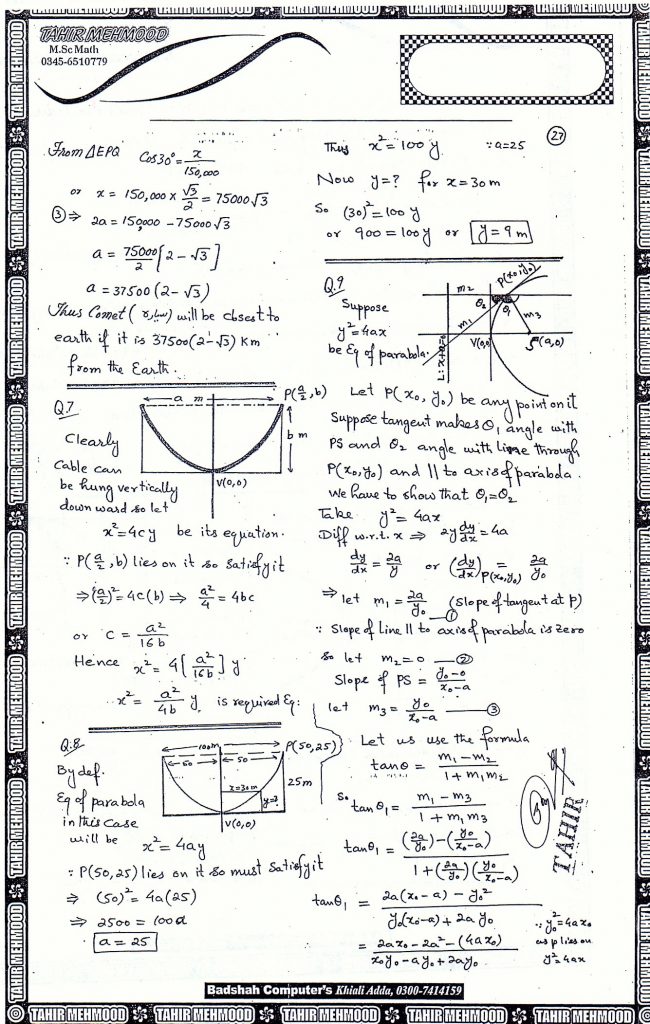 TAHIR MEHMOOD
M.Sc Math
0345-6510779
27
From ΔEPQ Cos30° = x/150,000
or x = 150,000 × √3/2 = 75000√3
③ ⇒ 2a = 150,000 − 75000√3
a = 75000/2 [2 − √3]
a = 37500 (2 − √3)
Thus Comet (سیارہ) will be closest to
earth if it is 37500(2−√3) Km
from the Earth.
Q.7
a m
P(a/2, b)
b m
V(0,0)
Clearly
Cable can
be hung vertically
down ward so let
x² = 4cy be its equation.
∵ P(a/2, b) lies on it so satisfy it
⇒ (a/2)² = 4c(b) ⇒ a²/4 = 4bc
or c = a²/16b
Hence x² = 4[a²/16b] y
x² = a²/4b y. is required Eq:
Q.8
100m
50 50
P(50,25)
25m
x=30m
y=?
V(0,0)
By def.
Eq of parabola
in this case
will be x² = 4ay
∵ P(50,25) lies on it so must satisfy it
⇒ (50)² = 4a(25)
⇒ 2500 = 100a
a = 25
Thus x² = 100y ∵ a=25
Now y=? for x=30m
So (30)² = 100y
or 900 = 100y or y = 9 m
Q.9
Suppose
y² = 4ax
be Eq of parabola.
P(x₀,y₀)
m₂
θ₂
θ₁
m₁
m₃
V(0,0)
(a,0)
L: x+a=0
Let P(x₀, y₀) be any point on it
Suppose tangent makes θ₁ angle with
PS and θ₂ angle with line through
P(x₀,y₀) and || to axis of parabola.
we have to show that θ₁=θ₂
Take y² = 4ax
Diff w.r.t. x ⇒ 2y dy/dx = 4a
dy/dx = 2a/y or (dy/dx)P(x₀,y₀) = 2a/y₀
⇒ let m₁ = 2a/y₀ —① (Slope of tangent at P)
∵ Slope of Line || to axis of parabola is zero
so let m₂ = 0 —②
Slope of PS = y₀−0/x₀−a
let m₃ = y₀/x₀−a —③
Let us use the formula
tanθ = m₁ − m₂/1 + m₁m₂
So tanθ₁ = m₁ − m₃/1 + m₁m₃
tanθ₁ = (2a/y₀) − (y₀/x₀−a)/1 + (2a/y₀)(y₀/x₀−a)
tanθ₁ = 2a(x₀−a) − y₀²/y₀(x₀−a) + 2ay₀
= 2ax₀ − 2a² − (4ax₀)/x₀y₀ − ay₀ + 2ay₀
∵ y₀² = 4ax₀
as p lies on
y² = 4ax
TAHIR
Badshah Computer's Khiali Adda, 0300-7414159
TAHIR MEHMOOD TAHIR MEHMOOD TAHIR MEHMOOD TAHIR MEHMOOD TAHIR MEHMOOD